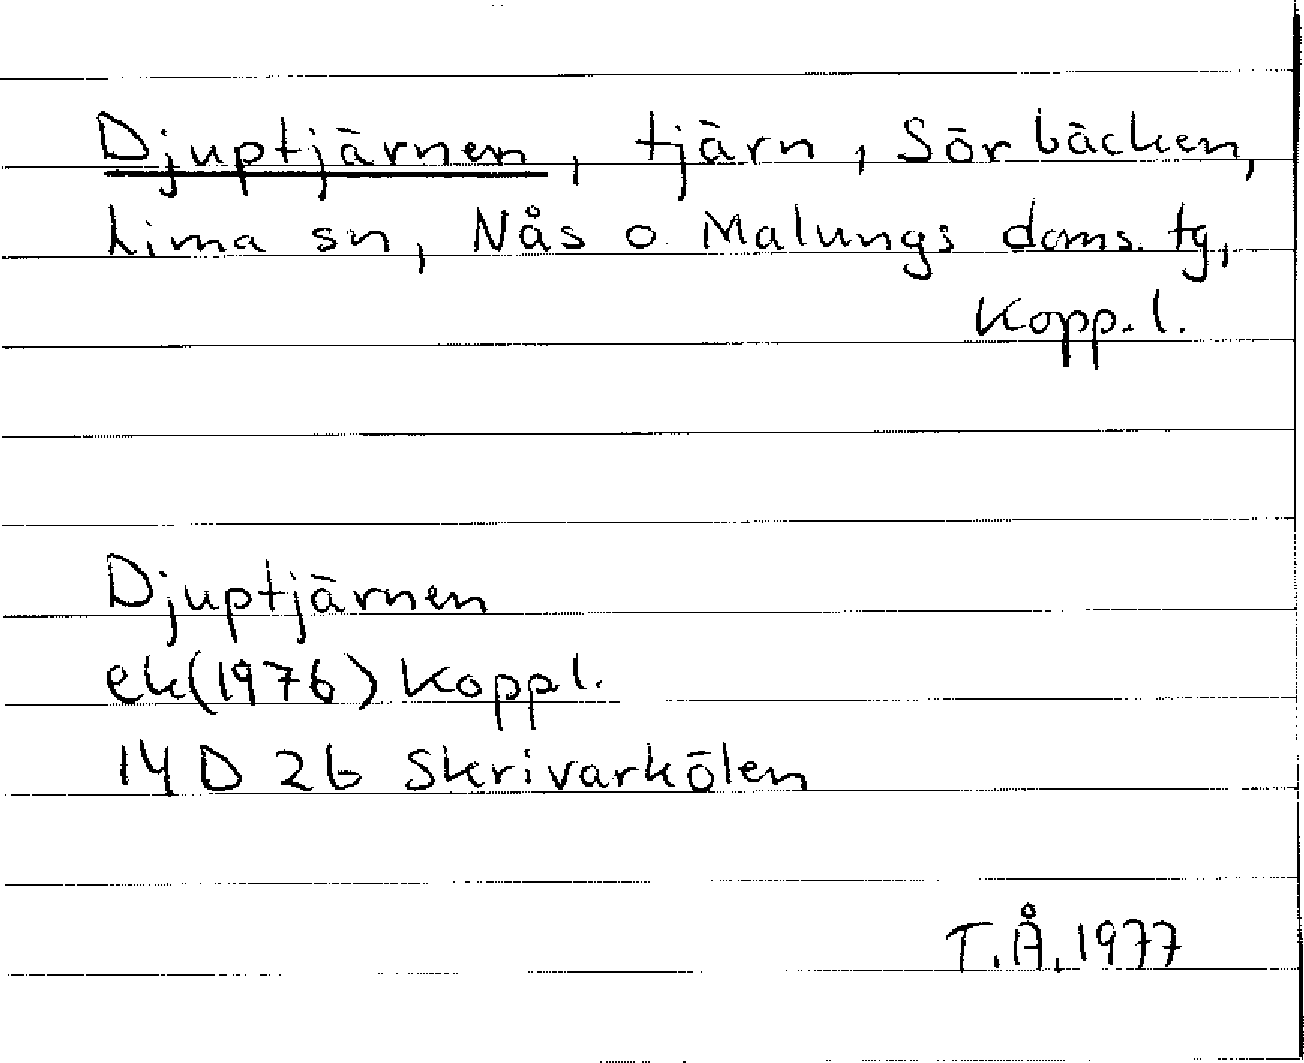 Djuptjärnen, tjärn, Sörbäcken,
Lima sn, Nås o Malungs doms. tg,
Kopp. l.
Djuptjärnen
ek(1976) Koppl.
14 D 2b Skrivarkölen
T.Å. 1977